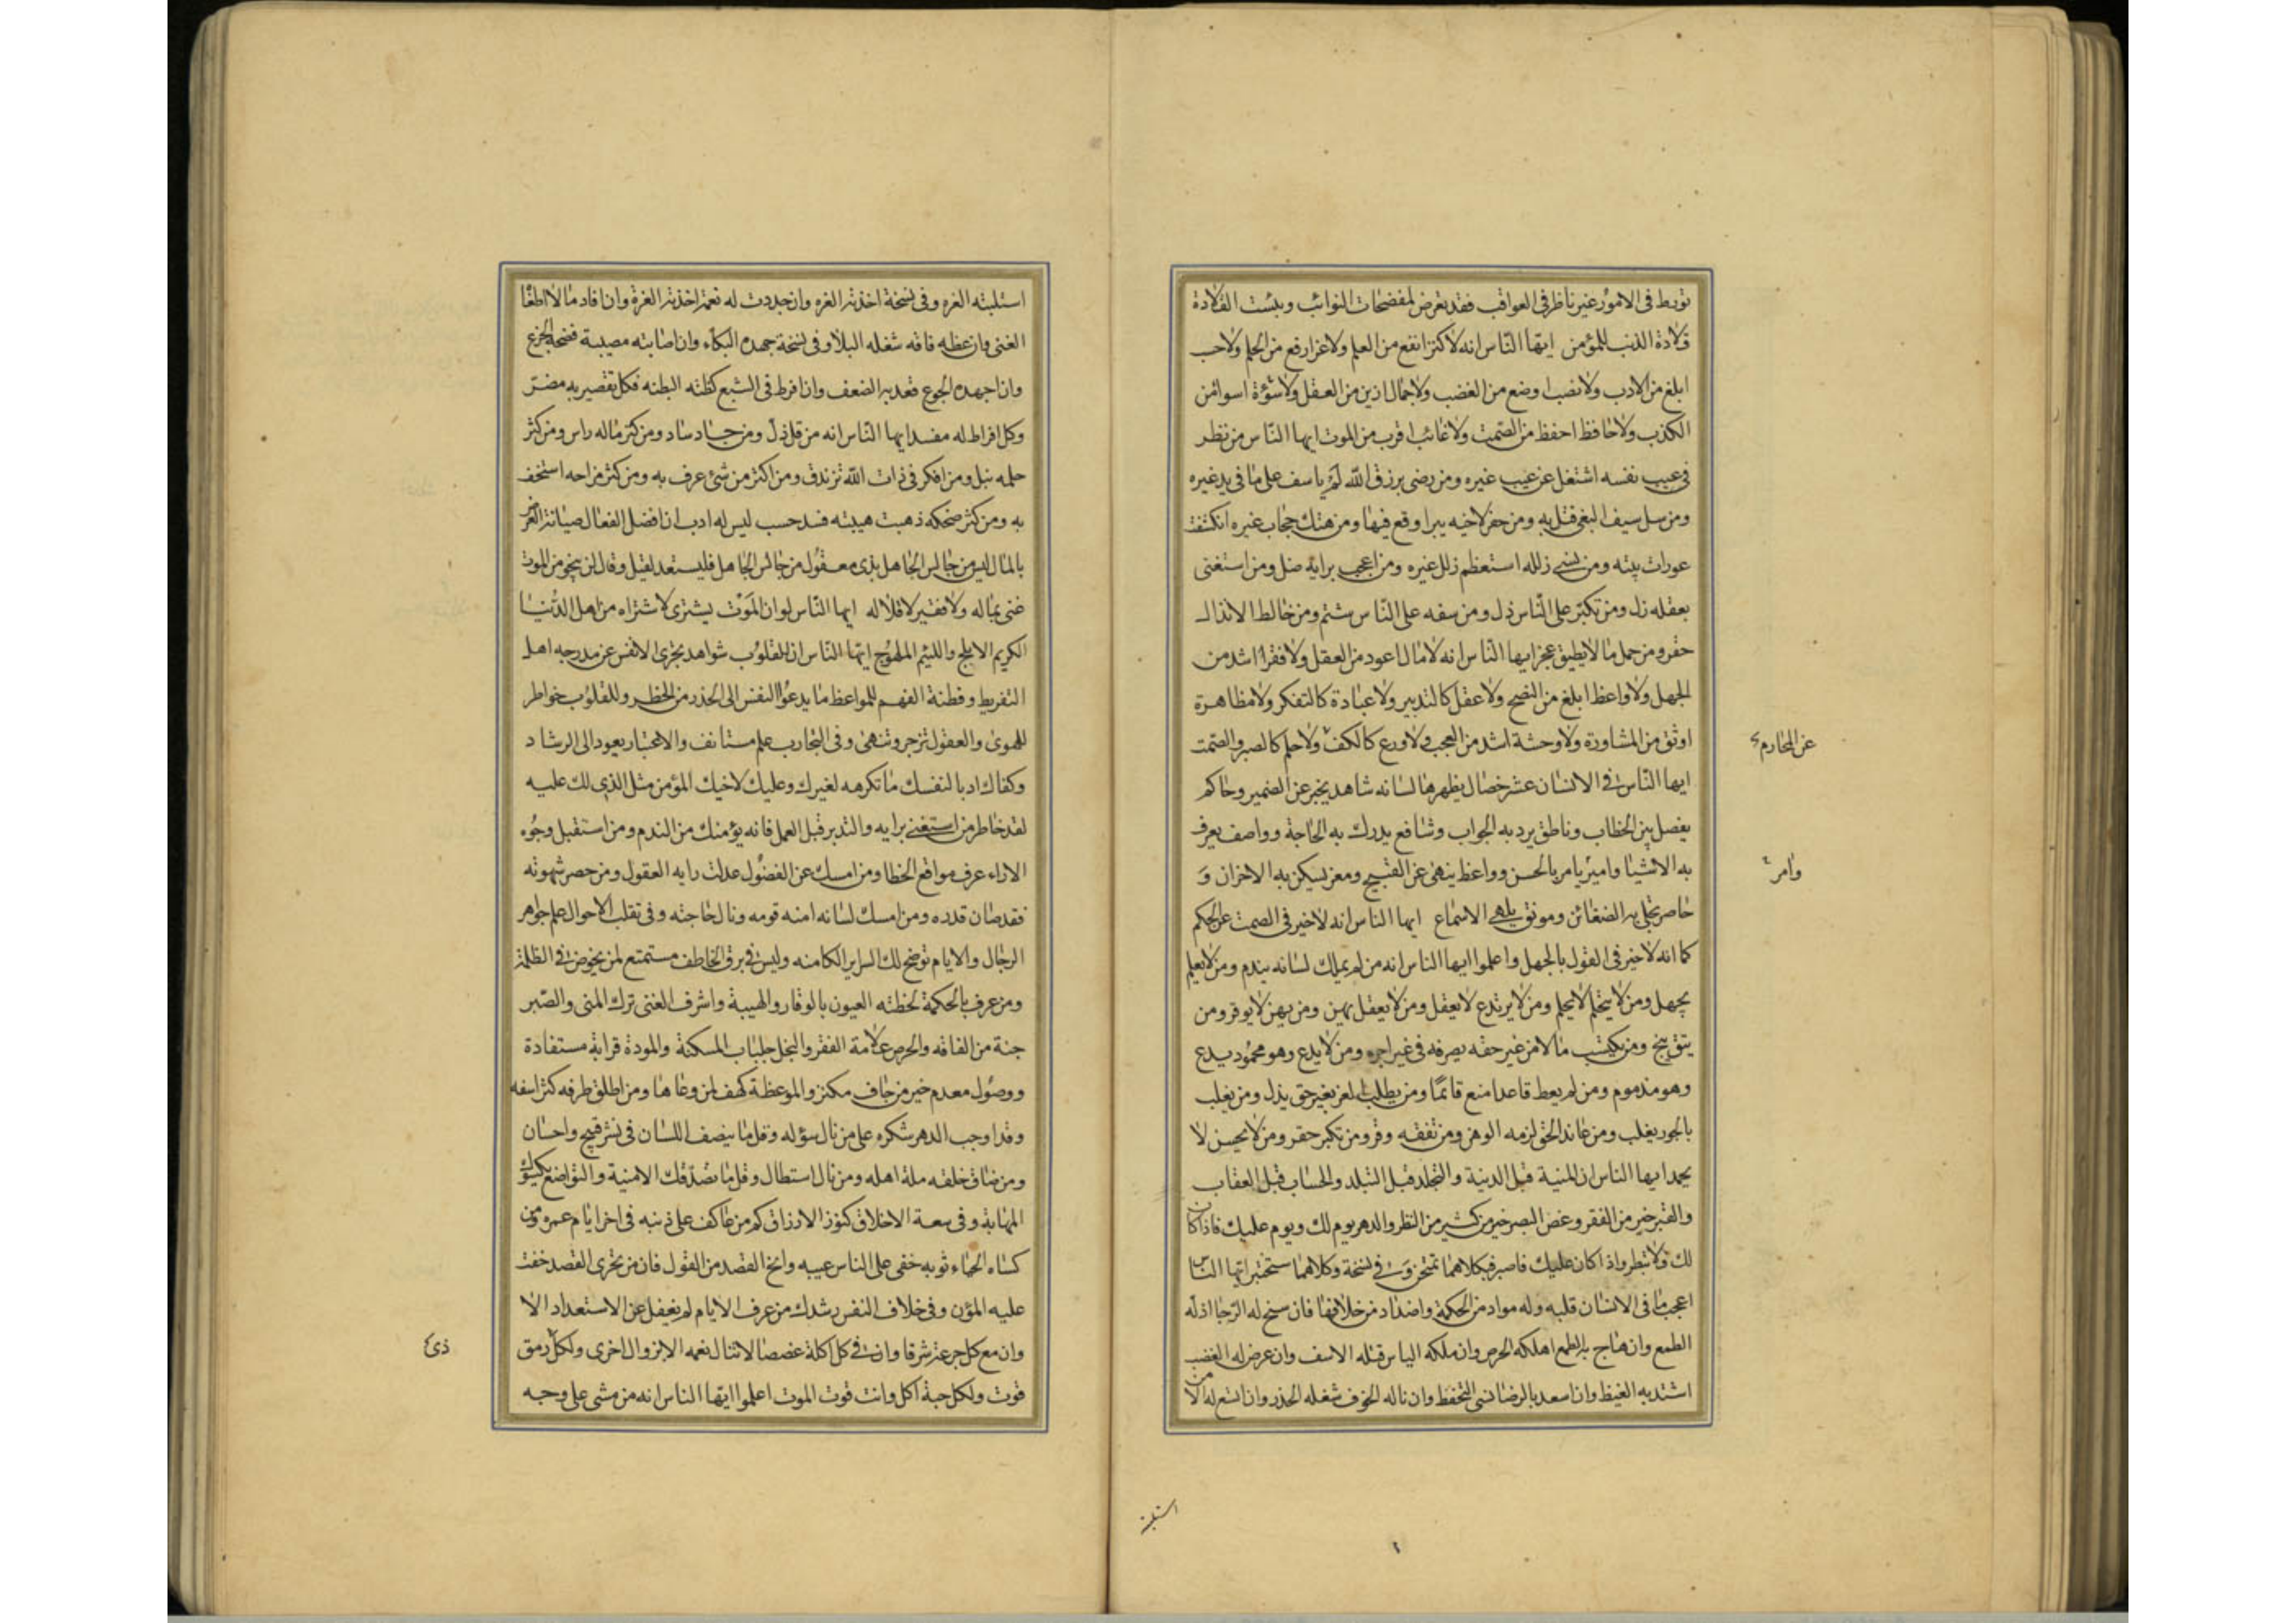 تورط فى الامور غير ناظر فى العواقب فقد تعرض لمفضحات النوائب وبئست القلادة
قلادة الذنب للمؤمن ايها الناس انه لا كنز انفع من العلم ولا عز ارفع من الحلم ولا حسب
ابلغ من الادب ولا نصب اوضع من الغضب ولا جمال ازين من العقل ولا سوءة اسوا من
الكذب ولا حافظ احفظ من الصمت ولا غائب اقرب من الموت ايها الناس من نظر
فى عيب نفسه اشتغل عن عيب غيره ومن رضى برزق الله لم ياسف على ما فى يد غيره
ومن سل سيف البغى قتل به ومن حفر لاخيه بيرا وقع فيها ومن هتك حجاب غيره انكشفت
عورات بيته ومن نسى زلله استعظم زلل غيره ومن اعجب برايه ضل ومن استغنى
بعقله زل ومن تكبر على الناس ذل ومن سفه على الناس شتم ومن خالط الانذال
حقر ومن حمل ما لا يطيق عجز ايها الناس انه لا مال اعود من العقل ولا فقر اشد من
الجهل ولا واعظ ابلغ من النصح ولا عقل كالتدبير ولا عبادة كالتفكر ولا مظاهرة
اوثق من المشاورة ولا وحشة اشد من العجب ولا ورع كالكف ولا حلم كالصبر والصمت
عن المحارم
ايها الناس فى الانسان عشر خصال يظهرها لسانه شاهد يخبر عن الضمير وحاكم
يفصل بين الخطاب وناطق يرد به الجواب وشافع يدرك به الحاجة وواصف يعرف
به الاشيا وامير يامر بالحسن وواعظ ينهى عن القبيح ومعز يسكن به الاحزان و
وامر
حاصر تجلى به الضغائن ومونق يلهى الاسماع ايها الناس انه لا خير فى الصمت عن الحكم
كما انه لا خير فى القول بالجهل واعلموا ايها الناس انه من لم يملك لسانه يندم ومن لا يعلم
يجهل ومن لا يتحلم لا يحلم ومن لا يرتدع لا يعقل ومن لا يعقل يهن ومن يهن لا يوقر ومن
يتق ينج ومن يكتسب مالا من غير حقه يصرفه فى غير اجره ومن لا يدع وهو محمود يدع
وهو مذموم ومن لم يعط قاعدا منع قائما ومن يطلب العز بغير حق يذل ومن يغلب
بالجور يغلب ومن عاند الحق لزمه الوهن ومن تفقه وقر ومن تكبر حقر ومن لا يحسن لا
يحمد ايها الناس ان المنية قبل الدنية والتجلد قبل التبلد والحساب قبل العقاب
والقبر خير من الفقر وغض البصر خير من كثير من النظر والدهر يوم لك ويوم عليك فاذا كان
لك فلا تبطر واذا كان عليك فاصبر فبكلاهما تمتحن وفى نسخة وكلاهما ستختبر ايها الناس
اعجب ما فى الانسان قلبه وله مواد من الحكمة واضداد من خلافها فان سنح له الرجا اذله
الطمع وان هاج به الطمع اهلكه الحرص وان ملكه الياس قتله الاسف وان عرض له الغضب
اشتد به الغيظ وان اسعد بالرضا نسى التحفظ وان ناله الخوف شغله الحذر وان اتسع له الامن
استلبته
استلبته الغره وفى نسخة اخذته الغره وان جددت له نعمة اخذته العزة وان افاد مالا اطغا
الغنى وان عظه فاقه شغله البلا وفى نسخة جهده البكاء وان اصابته مصيبة فضحه الجزع
وان اجهده الجوع قعد به الضعف وان افرط فى الشبع كظته البطنه فكل تقصير به مضر
وكل افراط له مفسد ايها الناس انه من قل ذل ومن جاد ساد ومن كثر ماله راس ومن كثر
حلمه نبل ومن افكر فى ذات الله تزندق ومن اكثر من شئ عرف به ومن كثر مزاحه استخف
به ومن كثر ضحكه ذهبت هيبته فسد حسب ليس له ادب ان افضل الفعال صيانة العرض
بالمال ليس من جالس الجاهل بذى معقول من جالس الجاهل فليستعد لقيل وقال لن ينجو من الموت
غنى بماله ولا فقير لاقلاله ايها الناس لو ان الموت يشترى لاشتراه من اهل الدنيا
الكريم الابلج واللئيم الملهوج ايها الناس ان للقلوب شواهد تجرى الانفس عن مدرجه اهل
التفريط وفطنة الفهم للمواعظ ما يدعوا النفس الى الحذر من الخطر وللقلوب خواطر
للهوى والعقول تزجر وتنهى وفى التجارب علم مستانف والاعتبار يعود الى الرشاد
وكفاك ادبا لنفسك ما تكرهه لغيرك وعليك لاخيك المؤمن مثل الذى لك عليه
لقد خاطر من استغنى برايه والتدبر قبل العمل فانه يؤمنك من الندم ومن استقبل وجوه
الاراء عرف مواقع الخطا ومن امسك عن الفضول عدلت رايه العقول ومن حصر شهوته
فقد صان قدره ومن امسك لسانه امنه قومه ونال حاجته وفى تقلب الاحوال علم جواهر
الرجال والايام توضح لك السراير الكامنه وليس فى برق الخاطف مستمتع لمن يخوض فى الظلمة
ومن عرف بالحكمة لحظته العيون بالوقار والهيبة واشرف الغنى ترك المنى والصبر
جنة من الفاقه والحرص علامة الفقر والبخل جلباب المسكنة والمودة قرابة مستفادة
ووصول معدم خير من جاف مكثر والموعظة كهف لمن وعاها ومن اطلق طرفه كثر اسفه
وقد اوجب الدهر شكره على من نال سؤله وقل ما ينصف اللسان فى نشر قبيح واحسان
ومن ضاق خلقه مله اهله ومن نال استطال وقل ما تصدقك الامنية والتواضع يكسوك
المهابة وفى سعة الاخلاق كنوز الارزاق كم من عاكف على ذنبه فى اخر ايام عمره ومن
كساه الحياء ثوبه خفى على الناس عيبه وانح القصد من القول فان من تحرى القصد خفت
عليه المؤن وفى خلاف النفس رشدك من عرف الايام لم يغفل عن الاستعداد الا
وان مع كل جرعة شرقا وان فى كل اكلة غصصا لا تنال نعمه الا بزوال اخرى ولكل رمق
ذى
قوت ولكل حبة اكل وانت قوت الموت اعلموا ايها الناس انه من مشى على وجه